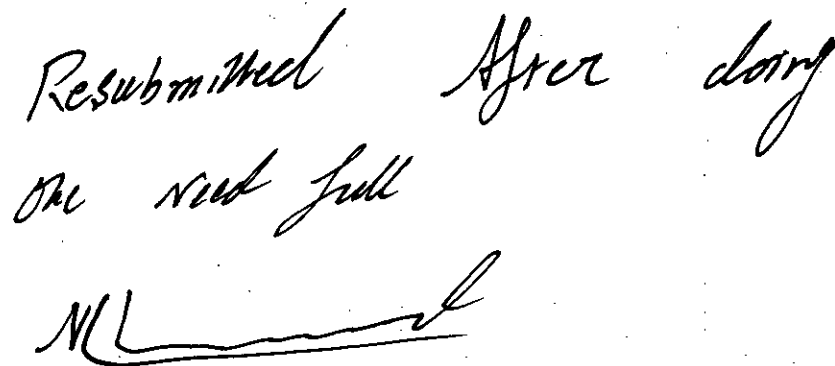 Resubmitted After doing
the Need full